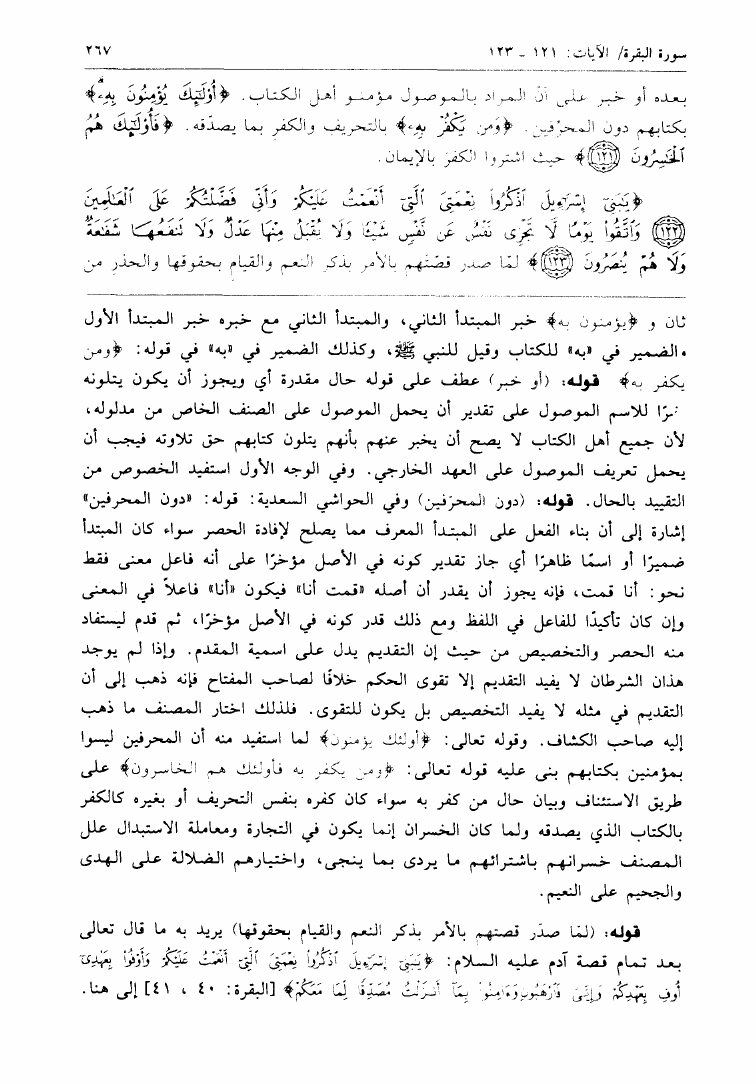 سورة البقرة/ الآيات: ١٢١ - ١٢٣ ٢٦٧
بعده أو خبر على أنّ المراد بالموصول مؤمنو أهل الكتاب. ﴿أُوْلَٰٓئِكَ يُؤْمِنُونَ بِهِۦ﴾
بكتابهم دون المحرّفين. ﴿وَمَن يَكْفُرْ بِهِۦ﴾ بالتحريف والكفر بما يصدّقه. ﴿فَأُوْلَٰٓئِكَ هُمُ
ٱلْخَٰسِرُونَ ﴿١٢١﴾﴾ حيث اشتروا الكفر بالإيمان.
﴿يَٰبَنِىٓ إِسْرَٰٓءِيلَ ٱذْكُرُوا۟ نِعْمَتِىَ ٱلَّتِىٓ أَنْعَمْتُ عَلَيْكُمْ وَأَنِّى فَضَّلْتُكُمْ عَلَى ٱلْعَٰلَمِينَ
﴿١٢٢﴾ وَٱتَّقُوا۟ يَوْمًا لَّا تَجْزِى نَفْسٌ عَن نَّفْسٍ شَيْـًٔا وَلَا يُقْبَلُ مِنْهَا عَدْلٌ وَلَا تَنفَعُهَا شَفَٰعَةٌ
وَلَا هُمْ يُنصَرُونَ ﴿١٢٣﴾﴾ لمّا صدر قصّتهم بالأمر بذكر النعم والقيام بحقوقها والحذر من
ثان و ﴿يؤمنون به﴾ خبر المبتدأ الثاني، والمبتدأ الثاني مع خبره خبر المبتدأ الأول
الضمير في «به» للكتاب وقيل للنبي ﷺ، وكذلك الضمير في «به» في قوله: ﴿ومن
يكفر به﴾ قوله: (أو خبر) عطف على قوله حال مقدرة أي ويجوز أن يكون يتلونه
خبرًا للاسم الموصول على تقدير أن يحمل الموصول على الصنف الخاص من مدلوله،
لأن جميع أهل الكتاب لا يصح أن يخبر عنهم بأنهم يتلون كتابهم حق تلاوته فيجب أن
يحمل تعريف الموصول على العهد الخارجي. وفي الوجه الأول استفيد الخصوص من
التقييد بالحال. قوله: (دون المحرّفين) وفي الحواشي السعدية: قوله: «دون المحرفين»
إشارة إلى أن بناء الفعل على المبتدأ المعرف مما يصلح لإفادة الحصر سواء كان المبتدأ
ضميرًا أو اسمًا ظاهرًا أي جاز تقدير كونه في الأصل مؤخرًا على أنه فاعل معنى فقط
نحو: أنا قمت، فإنه يجوز أن يقدر أن أصله «قمت أنا» فيكون «أنا» فاعلاً في المعنى
وإن كان تأكيدًا للفاعل في اللفظ ومع ذلك قدر كونه في الأصل مؤخرًا، ثم قدم ليستفاد
منه الحصر والتخصيص من حيث إن التقديم يدل على اسمية المقدم. وإذا لم يوجد
هذان الشرطان لا يفيد التقديم إلا تقوى الحكم خلافًا لصاحب المفتاح فإنه ذهب إلى أن
التقديم في مثله لا يفيد التخصيص بل يكون للتقوى. فلذلك اختار المصنف ما ذهب
إليه صاحب الكشاف. وقوله تعالى: ﴿أولئك يؤمنون﴾ لما استفيد منه أن المحرفين ليسوا
بمؤمنين بكتابهم بنى عليه قوله تعالى: ﴿ومن يكفر به فأولئك هم الخاسرون﴾ على
طريق الاستئناف وبيان حال من كفر به سواء كان كفره بنفس التحريف أو بغيره كالكفر
بالكتاب الذي يصدقه ولما كان الخسران إنما يكون في التجارة ومعاملة الاستبدال علل
المصنف خسرانهم باشترائهم ما يردى بما ينجى، واختيارهم الضلالة على الهدى
والجحيم على النعيم.
قوله: (لمّا صدّر قصتهم بالأمر بذكر النعم والقيام بحقوقها) يريد به ما قال تعالى
بعد تمام قصة آدم عليه السلام: ﴿يَٰبَنِىٓ إِسْرَٰٓءِيلَ ٱذْكُرُوا۟ نِعْمَتِىَ ٱلَّتِىٓ أَنْعَمْتُ عَلَيْكُمْ وَأَوْفُوا۟ بِعَهْدِىٓ
أُوفِ بِعَهْدِكُمْ وَإِيَّٰىَ فَٱرْهَبُونِ وَءَامِنُوا۟ بِمَآ أَنزَلْتُ مُصَدِّقًا لِّمَا مَعَكُمْ﴾ [البقرة: ٤٠ ، ٤١] إلى هنا.